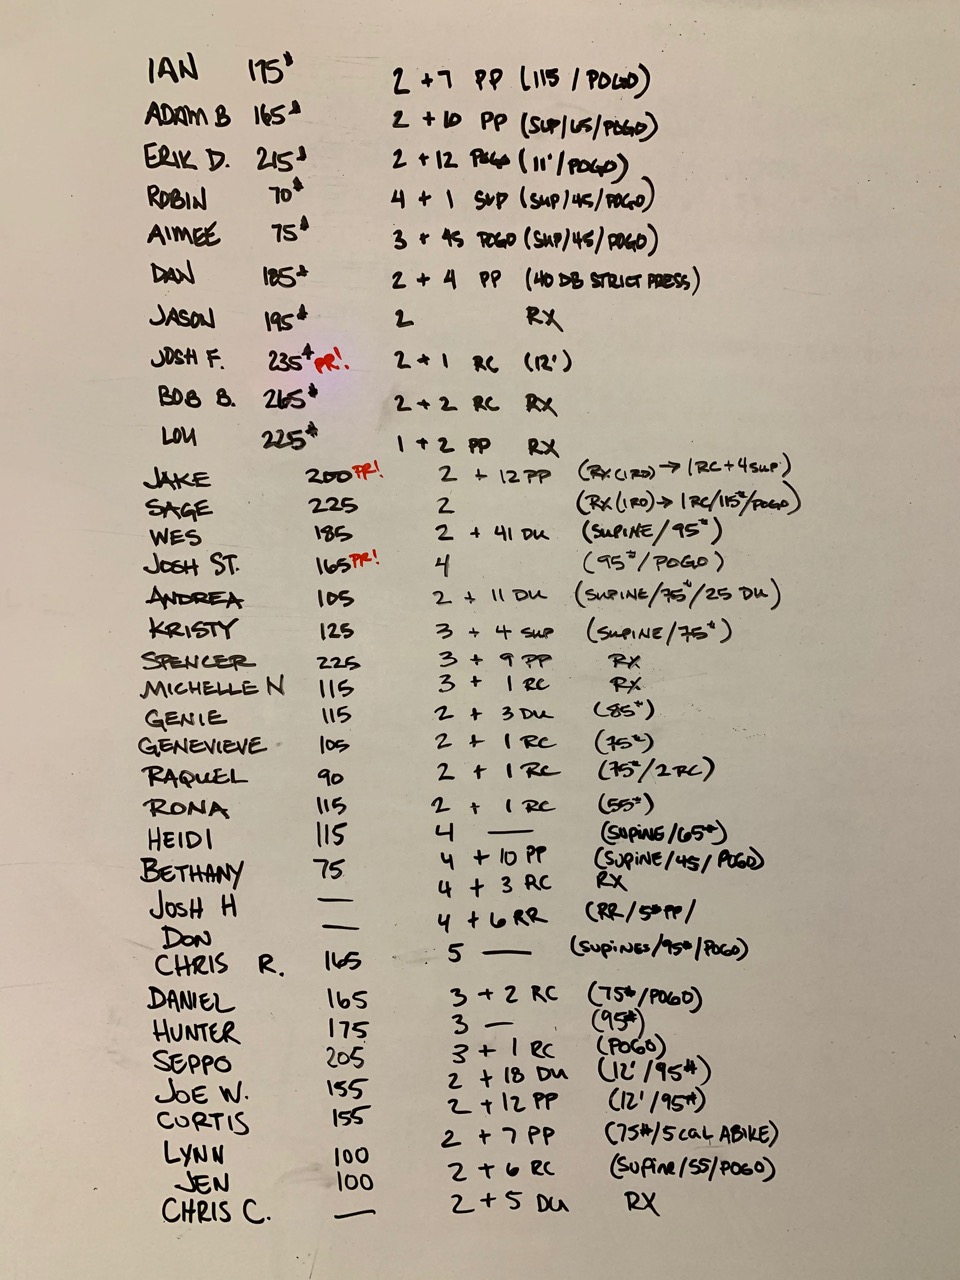 IAN 175# 2 + 7 PP (115 / POGO)
ADAM B 165# 2 + 10 PP (SUP/65/POGO)
ERIK D. 215# 2 + 12 POGO (11'/POGO)
ROBIN 70# 4 + 1 SUP (SUP/45/POGO)
AIMEÉ 75# 3 + 45 POGO (SUP/45/POGO)
DAN 185# 2 + 4 PP (40 DB STRICT PRESS)
JASON 195# 2 RX
JOSH F. 235# PR! 2 + 1 RC (12')
BOB B. 265# 2 + 2 RC RX
LOU 225# 1 + 2 PP RX
JAKE 200 PR! 2 + 12 PP (RX (1RD) → 1RC + 4 SUP)
SAGE 225 2 (RX (1RD) → 1RC/115#/POGO)
WES 185 2 + 41 DU (SUPINE/95#)
JOSH ST. 165 PR! 4 (95#/POGO)
ANDREA 105 2 + 11 DU (SUPINE/75#/25 DU)
KRISTY 125 3 + 4 SUP (SUPINE/75#)
SPENCER 225 3 + 9 PP RX
MICHELLE N 115 3 + 1 RC RX
GENIE 115 2 + 3 DU (85#)
GENEVIEVE 105 2 + 1 RC (75#)
RAQUEL 90 2 + 1 RC (75#/2 RC)
RONA 115 2 + 1 RC (55#)
HEIDI 115 4 — (SUPINE/65#)
BETHANY 75 4 + 10 PP (SUPINE/45/POGO)
JOSH H — 4 + 3 RC RX
DON — 4 + 6 RR (RR/5# PP/
CHRIS R. 165 5 — (SUPINES/95#/POGO)
DANIEL 165 3 + 2 RC (75#/POGO)
HUNTER 175 3 — (95#)
SEPPO 205 3 + 1 RC (POGO)
JOE W. 155 2 + 18 DU (12'/95#)
CURTIS 155 2 + 12 PP (12'/95#)
LYNN 100 2 + 7 PP (75#/5 CAL ABIKE)
JEN 100 2 + 6 RC (SUPINE/55/POGO)
CHRIS C. — 2 + 5 DU RX